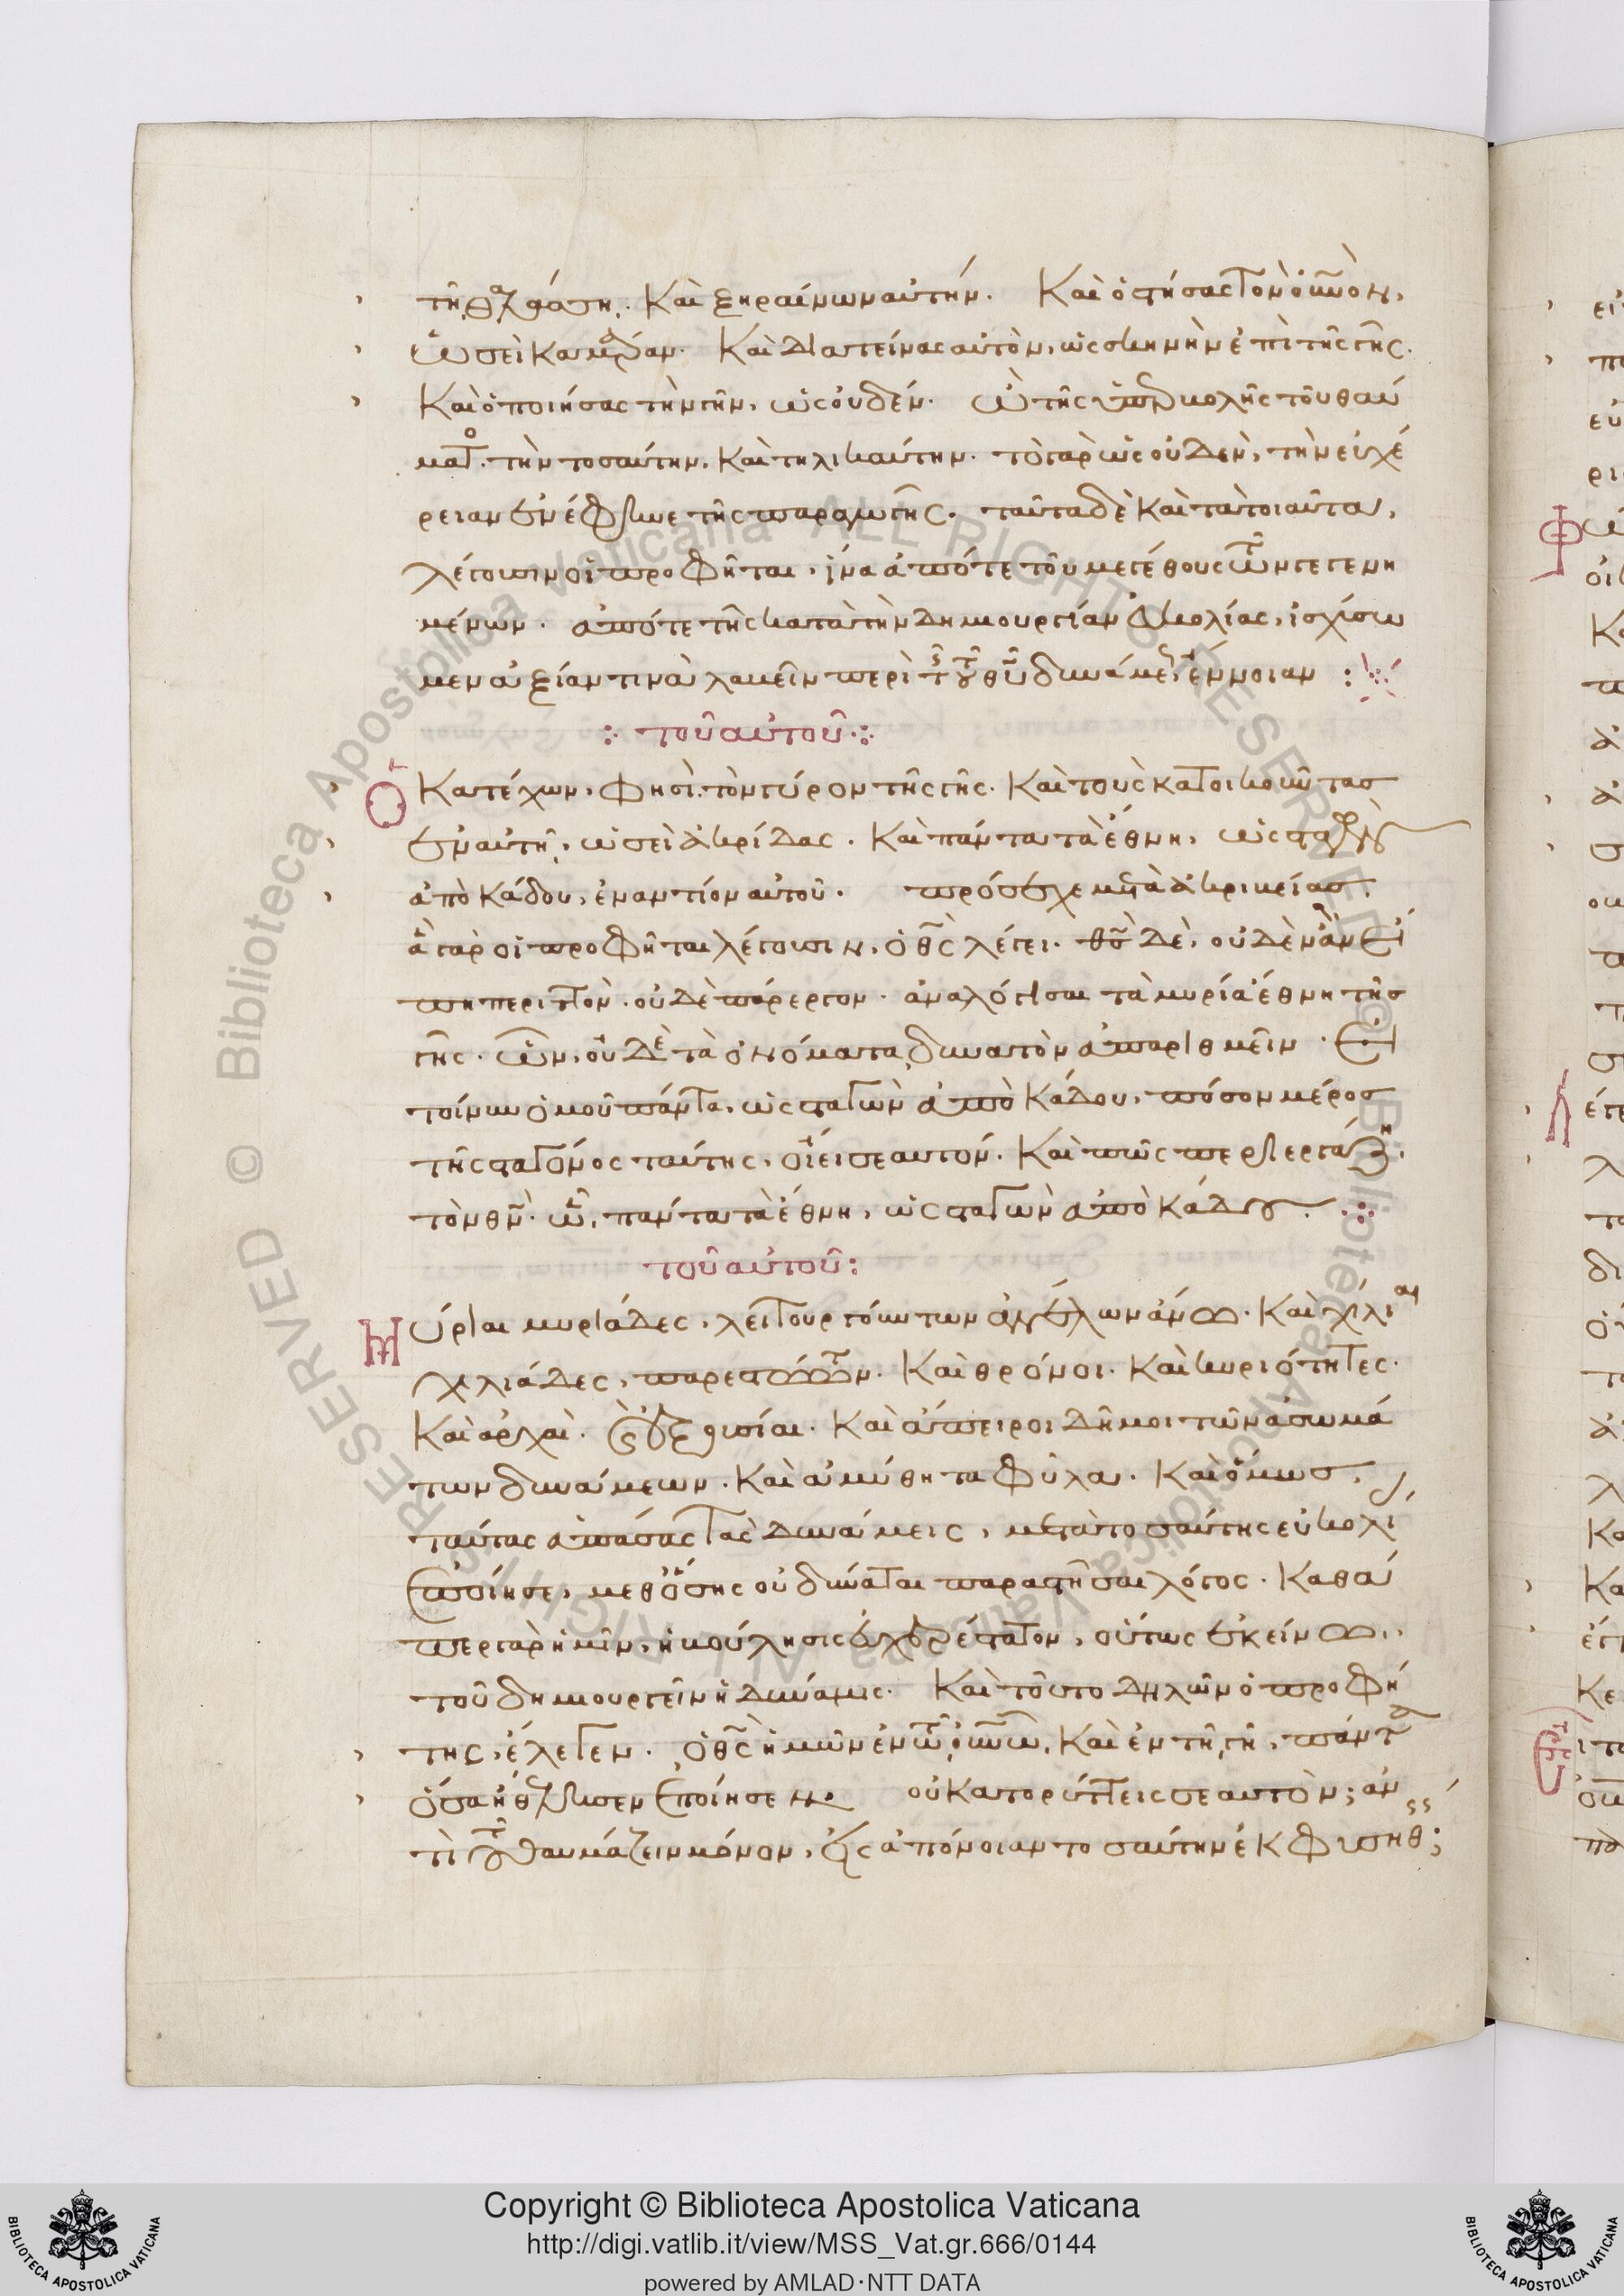 τῇ θαλάσσῃ. Καὶ ξηραίνων αὐτήν. Καὶ ὁ στήσας τὸν οὐνὸν,
ὡσεὶ καμάραν. Καὶ διατείνας αὐτὸν, ὡς σκηνὴν ἐπὶ τῆς γῆς.
Καὶ ὁ ποιήσας τὴν γῆν, ὡς οὐδέν. ὢ τῆς ὑπερβολῆς τοῦ θαύ
ματο. τὴν τοσαύτην. Καὶ τηλικαύτην. τὸ γὰρ ὡς οὐδὲν, τὴν εὐχέ
ρειαν ἐνέφηνε τῆς παραγωγῆς. ταῦτα δὲ καὶ τὰ τοιαῦτα,
λέγουσιν οἱ προφῆται, ἵνα ἀπό τε τοῦ μεγέθους τῶν γεγενη
μένων. ἀπό τε τῆς κατὰ τὴν δημιουργίαν εὐκολίας, ἰσχύσω
μεν ἀξίαν τινὰ λαβεῖν περὶ τῆς τοῦ θῦ δυνάμεως ἔννοιαν :
τοῦ αὐτοῦ
Ὁ Κατέχων, φησὶ τὸν γύρον τῆς γῆς. Καὶ τοὺς κατοικοῦντας
ἐν αὐτῇ, ὡσεὶ ἀκρίδας. Καὶ πάντα τὰ ἔθνη, ὡς σταγὼν
ἀπὸ κάδου, ἐναντίον αὐτοῦ. πρόσεχε μετὰ ἀκριβείας.
ἃ γὰρ οἱ προφῆται λέγουσιν, ὁ θς λέγει. θς δὲ, οὐδὲν ἂν εἴ
ποι περιττὸν. οὐδὲ πάρεργον. ἀναλόγισαι τὰ μυρία ἔθνη τῆς
γῆς. ὧν, οὐδὲ τὰ ὀνόματα δυνατὸν ἀπαριθμεῖν. Εἰ
τοίνυν ὁμοῦ πάντα, ὡς σταγὼν ἀπὸ κάδου, πόσον μέρος
τῆς σταγόνος ταύτης, οἴει σεαυτόν. Καὶ πῶς περιεργάζῃ
τὸν θν. ᾧ, πάντα τὰ ἔθνη, ὡς σταγὼν ἀπὸ κάδου.
τοῦ αὐτοῦ :
Μύριαι μυριάδες, λειτουργούντων ἀγγέλων ἄνω. Καὶ χίλιαι
χιλιάδες, παρεστώτων. Καὶ θρόνοι. Καὶ κυριότητες.
Καὶ ἀρχαὶ. καὶ ἐξουσίαι. Καὶ ἄπειροι δῆμοι τῶν ἀσωμά
των δυνάμεων. Καὶ ἀμύθητα φύλα. Καὶ ὅμως,
ταύτας ἁπάσας τὰς δυνάμεις, μετὰ τοσαύτης εὐκολί
ἐποίησε, μεθ ὅσης οὐ δύναται παραστῆσαι λόγος. Καθά
περ γὰρ ἡμῖν, ἡ βούλησις εὐχερέστατον, οὕτως ἐκείνω,
τοῦ δημιουργεῖν ἡ δύναμις. Καὶ τοῦτο δηλῶν ὁ προφή
της, ἔλεγεν. ὁ θς ἡμῶν ἐν τῷ οὐνῷ, Καὶ ἐν τῇ γῇ, πάντα
ὅσα ἠθέλησεν ἐποίησεν. οὐ κατορύττεις σεαυτὸν; ἀν
τὶ τοῦ θαυμάζειν μόνον, εἰς ἀπόνοιαν τοσαύτην ἐκφυσηθείς;
Copyright © Biblioteca Apostolica Vaticana
http://digi.vatlib.it/view/MSS_Vat.gr.666/0144
powered by AMLAD·NTT DATA